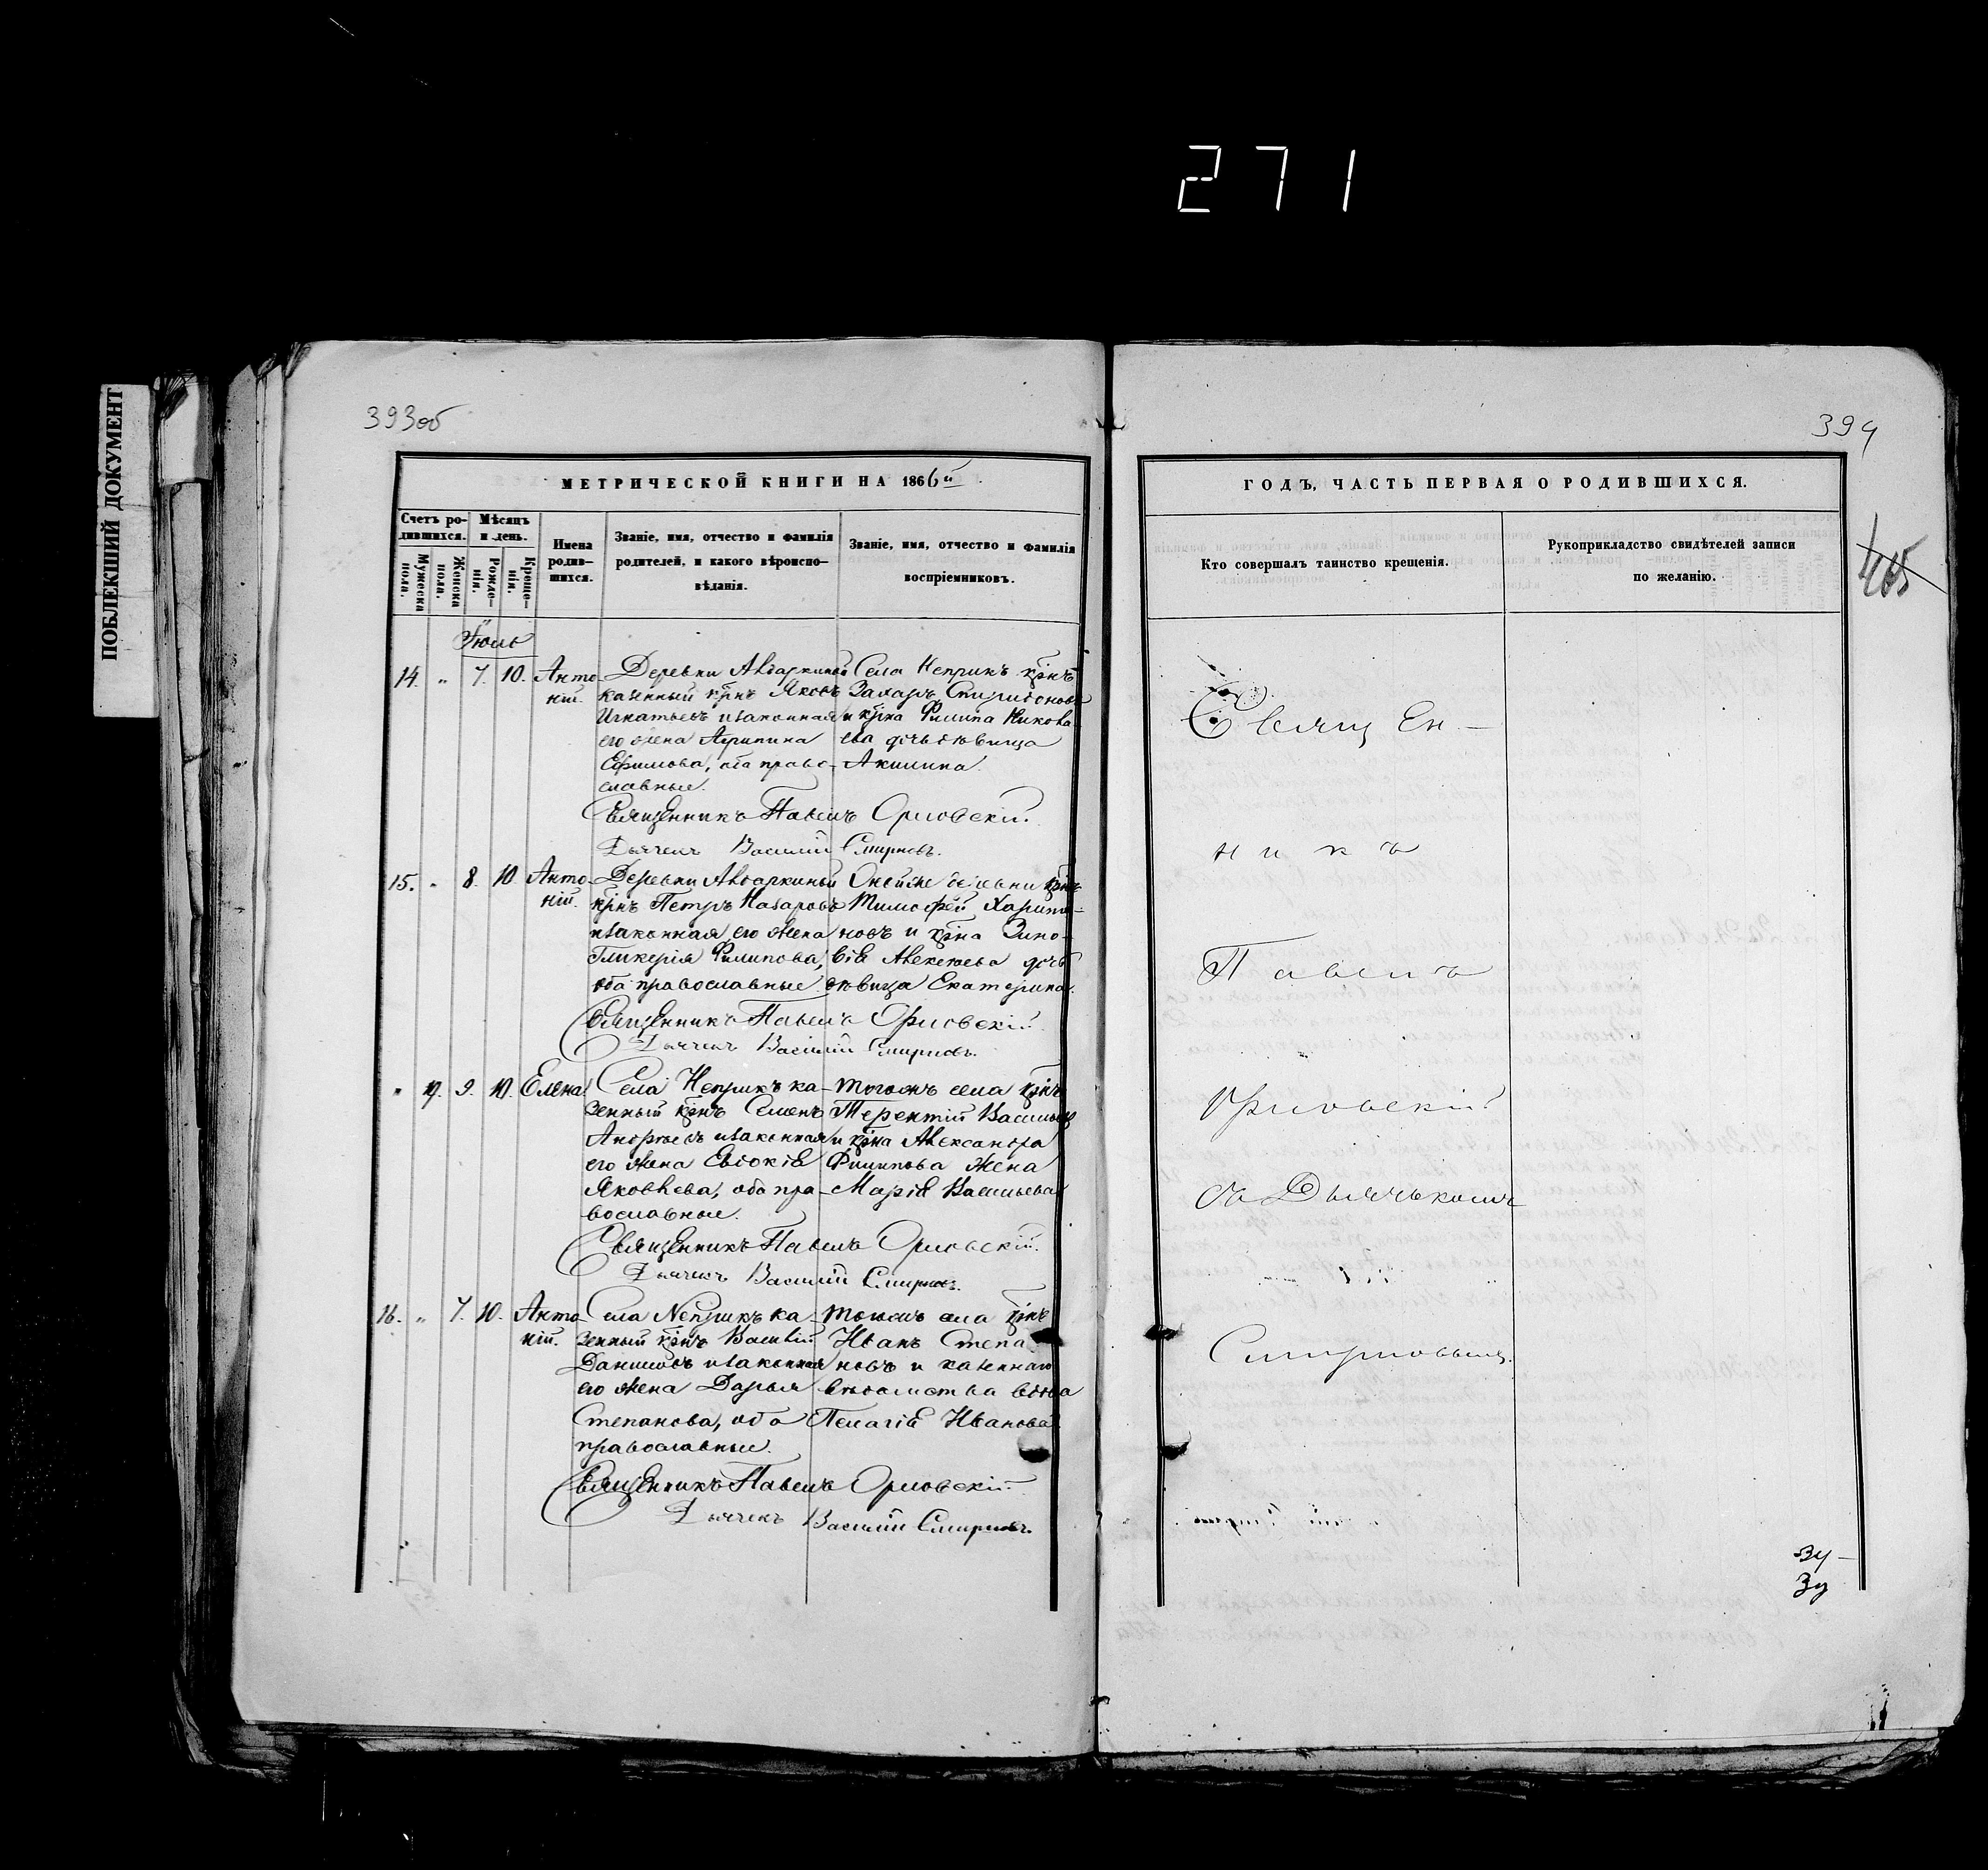 271
ПОБЛЕКШИЙ ДОКУМЕНТ
393об
МЕТРИЧЕСКОЙ КНИГИ НА 1866й
Счетъ ро-
дившихся.
Мужеска
пола.
Женска
пола.
Мѣсяцъ
и день.
Рожде-
нія.
Креще-
нія.
Имена
родив-
шихся.
Званіе, имя, отчество и фамилія
родителей, и какого вѣроиспо-
вѣданія.
Званіе, имя, отчество и фамилія
воспріемниковъ.
Іюль
14. " 7. 10. Анто
ній.
Деревни
казенный крнъ Яковъ
Игнатьевъ изаконная
его жена Агрипина
Ефимова, оба право-
славные.
Села Неприкъ крнъ
Захаръ Спиридоновъ
и крнка Филипа
ева дочь дѣвица
Акилина.
Священникъ Павелъ Орловскій.
Дьячекъ Василій Смирновъ.
15. " 8. 10 Анто-
ній.
Деревни
крнъ Петръ Назаровъ
изаконная его жена
Гликерія Филипова,
оба православные.
Оной же деревни крнъ
Тимофей Харито-
новъ и крнка Зино-
вія Алексеева дочь
дѣвица Екатерина.
Священникъ Павелъ Орловскій
Дьячекъ Василій Смирновъ.
" 19. 9. 10. Елена.
Села Неприкъ ка-
зенный крнъ Семенъ
Андреевъ изаконная
его жена Евдокія
Яковлева, оба пра-
вославные.
тогожъ села крнъ
Терентій Васильевъ
и крнка Александра
Филипова жена
Марія Васильева
Священникъ Павелъ Орловскій.
Дьячекъ Василій Смирновъ.
16. " 7. 10. Анто-
ній.
Села Неприкъ ка-
зенный крнъ Василій
Даниловъ изаконная
его жена Дарья
Степанова, оба
православные.
тогожъ села крнъ
Иванъ Степа-
новъ и казеннаго
вѣдомства вдова
Пелагія Иванова.
Священникъ Павелъ Орловскій
Дьячекъ Василій Смирновъ.
394
465
ГОДЪ, ЧАСТЬ ПЕРВАЯ О РОДИВШИХСЯ.
Кто совершалъ таинство крещенія.
Рукоприкладство свидѣтелей записи
по желанію.
Священ-
никъ
Павелъ
Орловскій
съ Дьячькомъ
Смирновымъ.